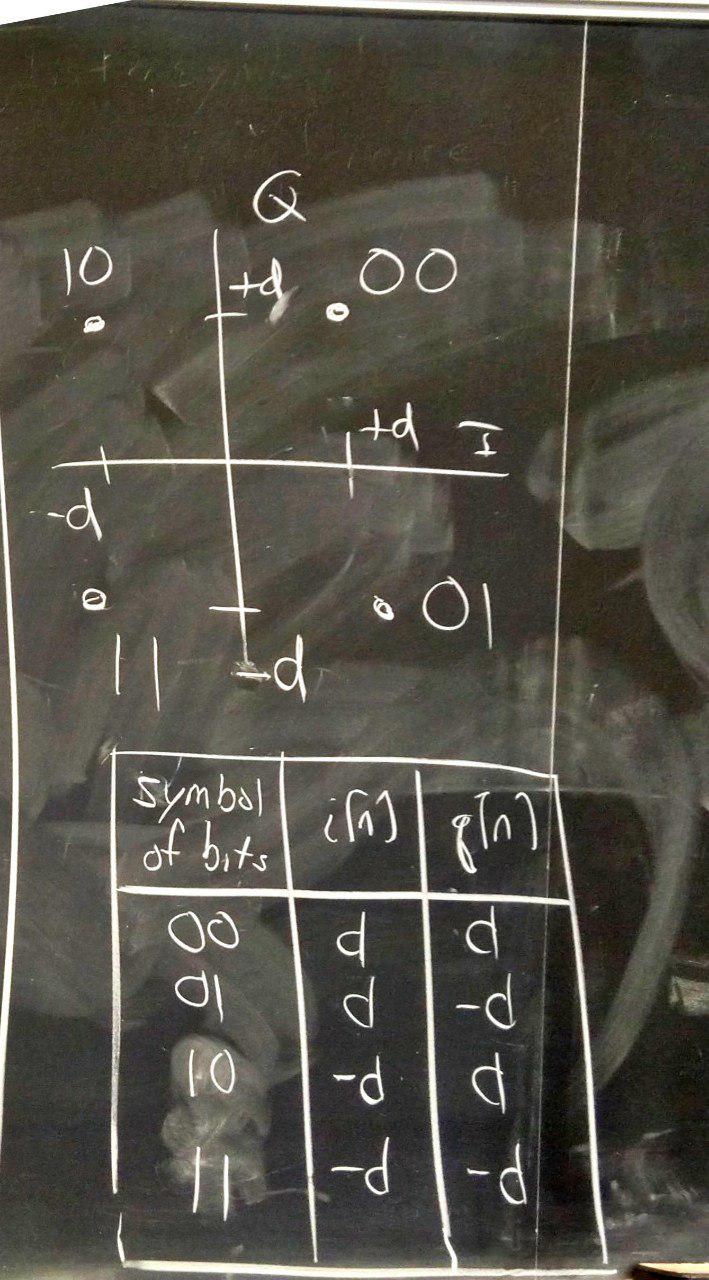 Q
10 +d 00
+d I
-d
01
11 -d
symbol of bits i[n] q[n]
00 d d
01 d -d
10 -d d
11 -d -d